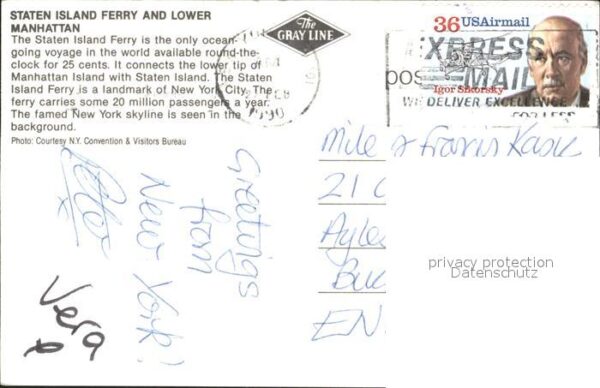 STATEN ISLAND FERRY AND LOWER
MANHATTAN
The Staten Island Ferry is the only ocean-
going voyage in the world available round-the-
clock for 25 cents. It connects the lower tip of
Manhattan Island with Staten Island. The Staten
Island Ferry is a landmark of New York City. The
ferry carries some 20 million passengers a year.
The famed New York skyline is seen in the
background.
Photo: Courtesy N.Y. Convention & Visitors Bureau
The
GRAY LINE
1990
36 USAirmail
Igor Sikorsky
EXPRESS
MAIL
WE DELIVER EXCELLENCE
FOR LESS
pos
Greetings
from
New York!
Vera
x
Mile & Francis
21
Ayle
Buc
EN
privacy protection
Datenschutz